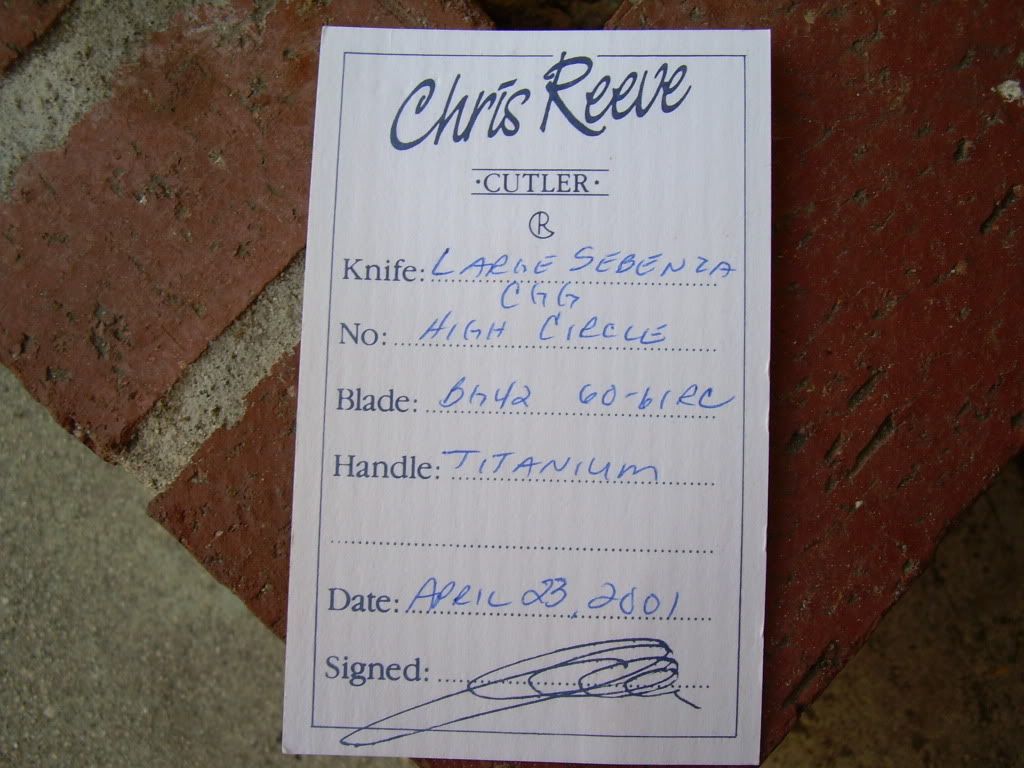 Chris Reeve
·CUTLER·
R
Knife: LARGE SEBENZA
CGG
No: HIGH CIRCLE
Blade: BG42 60-61RC
Handle: TITANIUM
Date: APRIL 23, 2001
Signed: